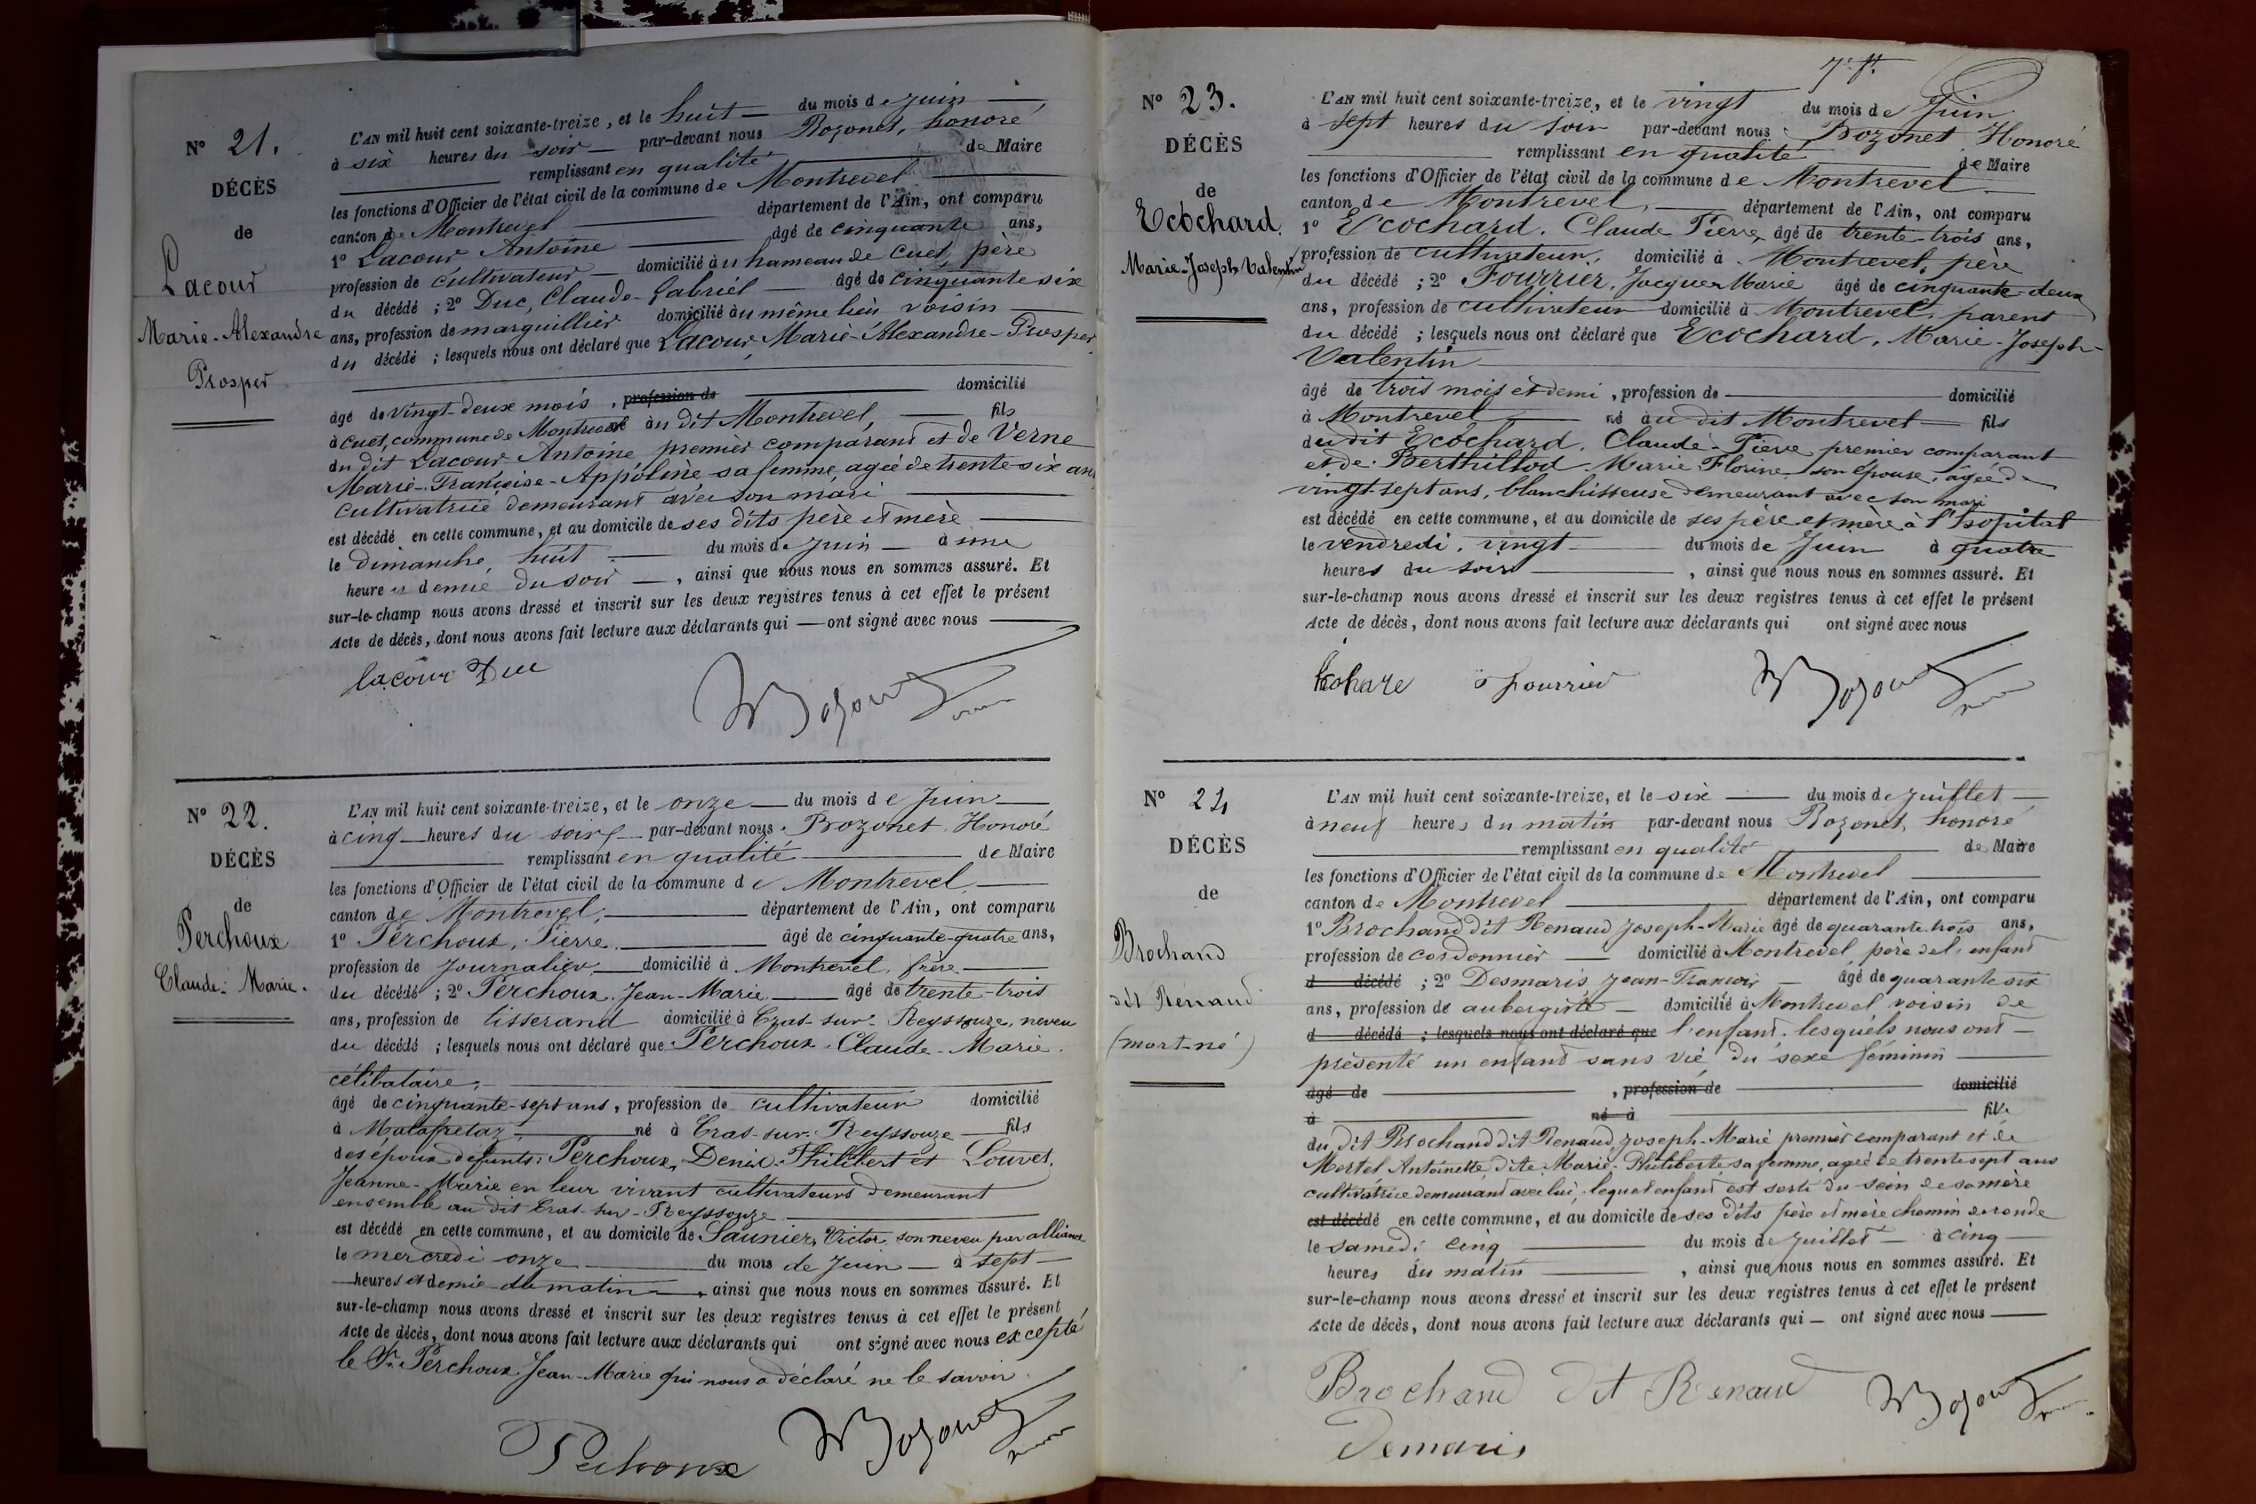 N° 21.
DÉCÈS
de
Lacour
Marie-Alexandre
Prosper
L'AN mil huit cent soixante-treize, et le huit du mois de juin
à six heures du soir par-devant nous Bozonet, honoré
remplissant en qualité de Maire
les fonctions d'Officier de l'état civil de la commune de Montrevel
canton de Montrevel département de l'Ain, ont comparu
1° Lacour Antoine âgé de cinquante ans,
profession de cultivateur domicilié au hameau de Cuet, père
du décédé ; 2° Duc, Claude-Gabriel âgé de cinquante six
ans, profession de marguillier domicilié au même lieu voisin
du décédé ; lesquels nous ont déclaré que Lacour, Marie-Alexandre-Prosper
âgé de vingt-deux mois, profession de domicilié
à Cuet, commune de Montrevel né au dit Montrevel, fils
du dit Lacour Antoine premier comparant et de Verne
Marie-Françoise-Appoline sa femme, agée de trente-six ans
cultivatrice demeurant avec son mari
est décédé en cette commune, et au domicile de ses dits père et mère
le dimanche, huit du mois de juin à une
heure et demie du soir, ainsi que nous nous en sommes assuré. Et
sur-le-champ nous avons dressé et inscrit sur les deux registres tenus à cet effet le présent
Acte de décès, dont nous avons fait lecture aux déclarants qui — ont signé avec nous
lacour Duc Bozonet
N° 22.
DÉCÈS
de
Perchoux
Claude-Marie.
L'AN mil huit cent soixante-treize, et le onze du mois de Juin
à cinq heures du soir par-devant nous Bozonet, Honoré
remplissant en qualité de Maire
les fonctions d'Officier de l'état civil de la commune de Montrevel
canton de Montrevel, département de l'Ain, ont comparu
1° Perchoux, Pierre âgé de cinquante-quatre ans,
profession de journalier domicilié à Montrevel, frère
du décédé ; 2° Perchoux Jean-Marie âgé de trente-trois
ans, profession de tisserand domicilié à Cras-sur-Reyssouze, neveu
du décédé ; lesquels nous ont déclaré que Perchoux Claude-Marie
célibataire,
âgé de cinquante-sept ans, profession de cultivateur domicilié
à Malafretaz né à Cras-sur-Reyssouze fils
des époux défunts : Perchoux, Denis-Philibert et Louvet,
Jeanne-Marie en leur vivant cultivateurs demeurant
ensemble au dit Cras-sur-Reyssouze
est décédé en cette commune, et au domicile de Saunier, Victor, son neveu par alliance
le mercredi onze du mois de Juin à sept
heures et demie du matin, ainsi que nous nous en sommes assuré. Et
sur-le-champ nous avons dressé et inscrit sur les deux registres tenus à cet effet le présent
Acte de décès, dont nous avons fait lecture aux déclarants qui ont signé avec nous excepté
le Sr Perchoux Jean-Marie qui nous a déclaré ne le savoir.
Perhoux Bozonet
7e ft
N° 23.
DÉCÈS
de
Ecochard
Marie-Joseph-Valentin
L'AN mil huit cent soixante-treize, et le vingt du mois de Juin
à sept heures du soir par-devant nous Bozonet, Honoré
remplissant en qualité de Maire
les fonctions d'Officier de l'état civil de la commune de Montrevel
canton de Montrevel, département de l'Ain, ont comparu
1° Ecochard, Claude Pierre, âgé de trente-trois ans,
profession de cultivateur, domicilié à Montrevel, père
du décédé ; 2° Fourrier, Jacques Marie âgé de cinquante-deux
ans, profession de cultivateur domicilié à Montrevel, parent
du décédé ; lesquels nous ont déclaré que Ecochard, Marie-Joseph-
Valentin
âgé de trois mois et demi, profession de domicilié
à Montrevel né au dit Montrevel fils
du dit Ecochard, Claude-Pierre premier comparant
et de Berthillod Marie Florine son épouse, âgée de
vingt-sept ans, blanchisseuse demeurant avec son mari
est décédé en cette commune, et au domicile de ses père et mère à l'hopital
le vendredi, vingt du mois de Juin à quatre
heures du soir, ainsi que nous nous en sommes assuré. Et
sur-le-champ nous avons dressé et inscrit sur les deux registres tenus à cet effet le présent
Acte de décès, dont nous avons fait lecture aux déclarants qui ont signé avec nous
fourrier Bozonet
N° 24
DÉCÈS
de
Brochand
dit Renaud
(mort-né)
L'AN mil huit cent soixante-treize, et le six du mois de juillet
à neuf heures du matin par-devant nous Bozonet, honoré
remplissant en qualité de Maire
les fonctions d'Officier de l'état civil de la commune de Montrevel
canton de Montrevel département de l'Ain, ont comparu
1° Brochand dit Renaud Joseph-Marie âgé de quarante trois ans,
profession de cordonnier domicilié à Montrevel père de l'enfant
d décédé ; 2° Desmaris Jean-François âgé de quarante six
ans, profession de aubergiste domicilié à Montrevel voisin de
d décédé ; lesquels nous ont déclaré que l'enfant, lesquels nous ont
présenté un enfant sans vie du sexe féminin
âgé de , profession de domicilié
à né à fil
du dit Brochand dit Renaud Joseph-Marie premier comparant et de
Mortel Antoinette dite Marie-Philiberte sa femme, agée de trente sept ans
cultivatrice demeurant avec lui, lequel enfant est sorti du sein de sa mère
est décédé en cette commune, et au domicile de ses dits père et mère chemin de ronde
le samedi cinq du mois de juillet à cinq
heures du matin, ainsi que nous nous en sommes assuré. Et
sur-le-champ nous avons dressé et inscrit sur les deux registres tenus à cet effet le présent
Acte de décès, dont nous avons fait lecture aux déclarants qui — ont signé avec nous
Brochand dit Renaud Bozonet
Demaris